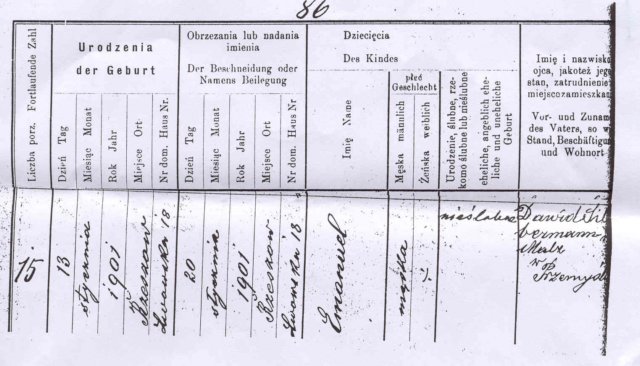 86
Liczba porz. Fortlaufende Zahl
Urodzenia
der Geburt
Dzień Tag
Miesiąc Monat
Rok Jahr
Miejsce Ort
Nr dom. Haus Nr.
Obrzezania lub nadania
imienia
Der Beschneidung oder
Namens Beilegung
Dzień Tag
Miesiąc Monat
Rok Jahr
Miejsce Ort
Nr dom. Haus Nr
Dziecięcia
Des Kindes
Imię Name
płeć
Geschlecht
Męska männlich
Żeńska weiblich
Urodzenie, ślubne, rze-
komo ślubne lub nieślubne
eheliche, angeblich ehe-
liche und uneheliche
Geburt
Imię i nazwisko
ojca, jakoteż jego
stan, zatrudnienie
miejsce zamieszkan
Vor- und Zunam
des Vaters, so w
Stand, Beschäftigu
und Wohnort
15
13
stycznia
1901
Rzeszów
Lwowska 18
20
stycznia
1901
Rzeszów
Lwowska 18
Emanuel
męska
nieślubne
Dawid Sil
bermann
w
Przemyśl